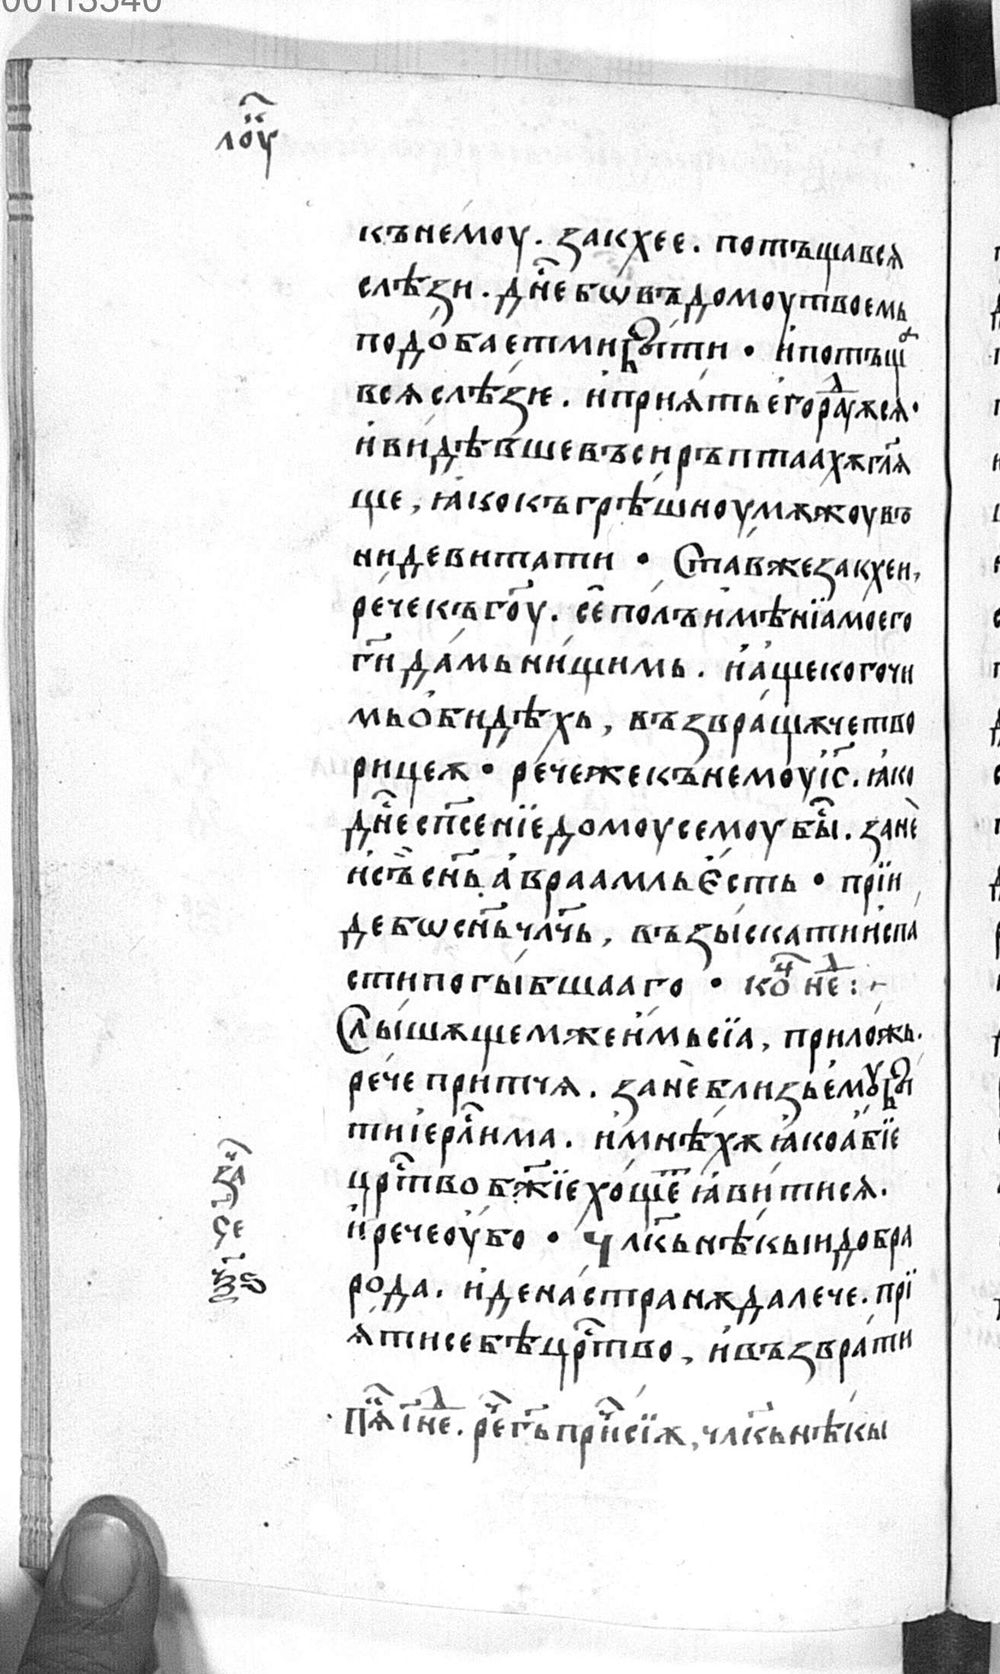 00113540
лоу҃
къ немоу . закхее . потъщавсѧ
слѣзи . дн҃е бѡ въ домоу твоемь
подобаетми быти • и потъща
всѧ слѣзе . и приѧть его раⷣуѫсѧ •
и видѣвше въси ръптаахѫ гл҃ѧ
ще , ꙗко къ грѣшноу мѫжоу въ
ниде витати • Ставже закхеи ,
рече къ гоу҃ . се полъ имѣнїа моего
ги҃ дамь нищимь . и аще кого чи
мь обидѣхь , възвращѫ четво
рицеѫ • рече же къ немоу іс҃ . ꙗко
дн҃е сп҃сенїе домоу семоу бы҃ . зане
и съ сн҃ь авраамль єсть • прїи
де бѡ сн҃ь чл҃чь , възыскати и спа
сти погыбшааго • коⷩ҇ неⷣ :
Слышѧщемже имь сїа , приложь .
рече притчѧ . зане близь емоу бы
ти іерⷭ҇лима . и мнѣхѫ ꙗко абїе
црⷭ҇тво бж҃їе хощеⷮ ꙗвитисѧ .
и рече оубо • чл҃кь нѣкыи добра
рода . иде на странѫ далече . прї
ѧти себѣ црⷭ҇тво , и възврати
за҃
че